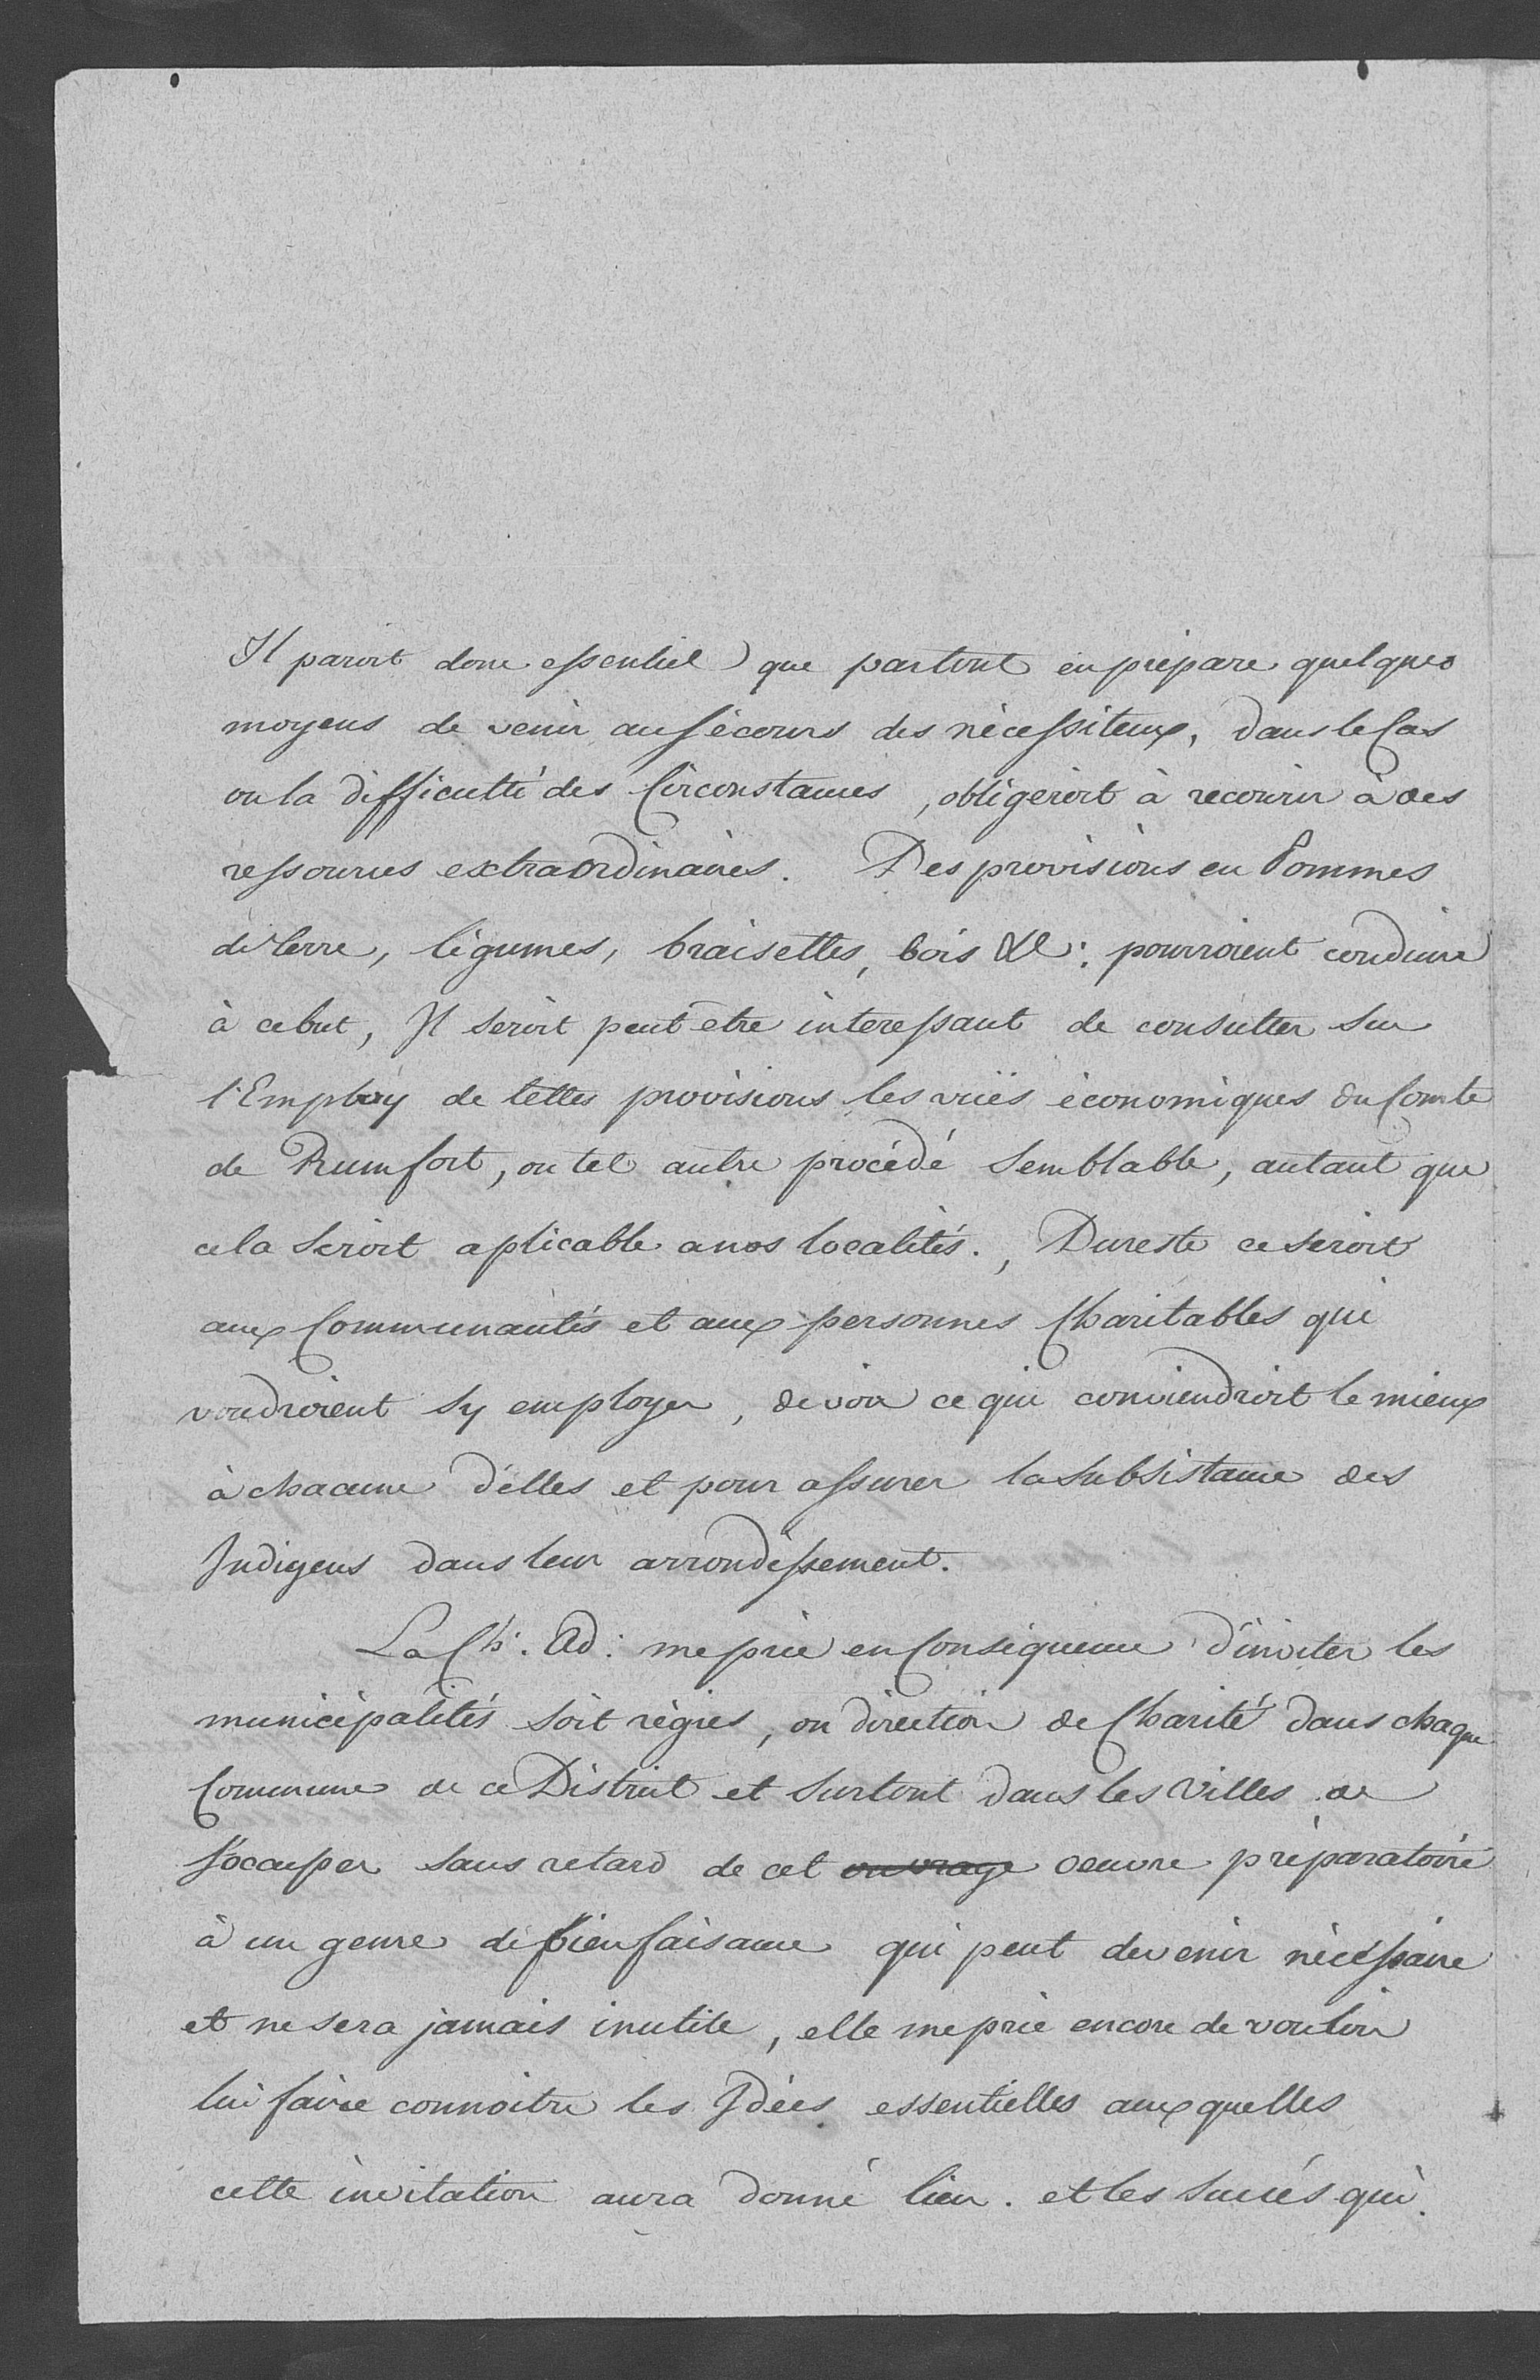 Il paroit donc essentiel que partout on prépare quelques
moyens de venir au sécours des nécessiteux, dans le Cas
ou la difficulté des Circonstances, obligeroit à recourir à des
ressources extraordinaires. Des provisions en Pommes
de terre, légumes, braisettes, bois &c: pourroient conduire
à ce but, Il seroit peut etre interessant de consulter sur
l'Employ de telles provisions les vües économiques du Comte
de Rumfort, ou tel autre procédé semblable, autant que
cela seroit aplicable a nos localités., Du reste ce seroit
aux Communautés et aux personnes Charitables qui
voudroient sy employer, de voir ce qui conviendroit le mieux
à chacune d'elles et pour assurer la subsistance des
Indigens dans leur arrondissement.
La Ch: Ad: me prie en Conséquence d'inviter les
municipalités soit régies, ou direction de Charité dans chaque
Commune de ce District et surtout dans les Villes de
s'occuper sans retard de cet ouvrage oeuvre préparatoire
à un genre de bienfaisance qui peut devenir nécessaire
et ne sera jamais inutile, elle me prie encore de vouloir
lui faire connoitre les Idées essentielles auxquelles
cette invitation aura donné lieu. et les succés qui